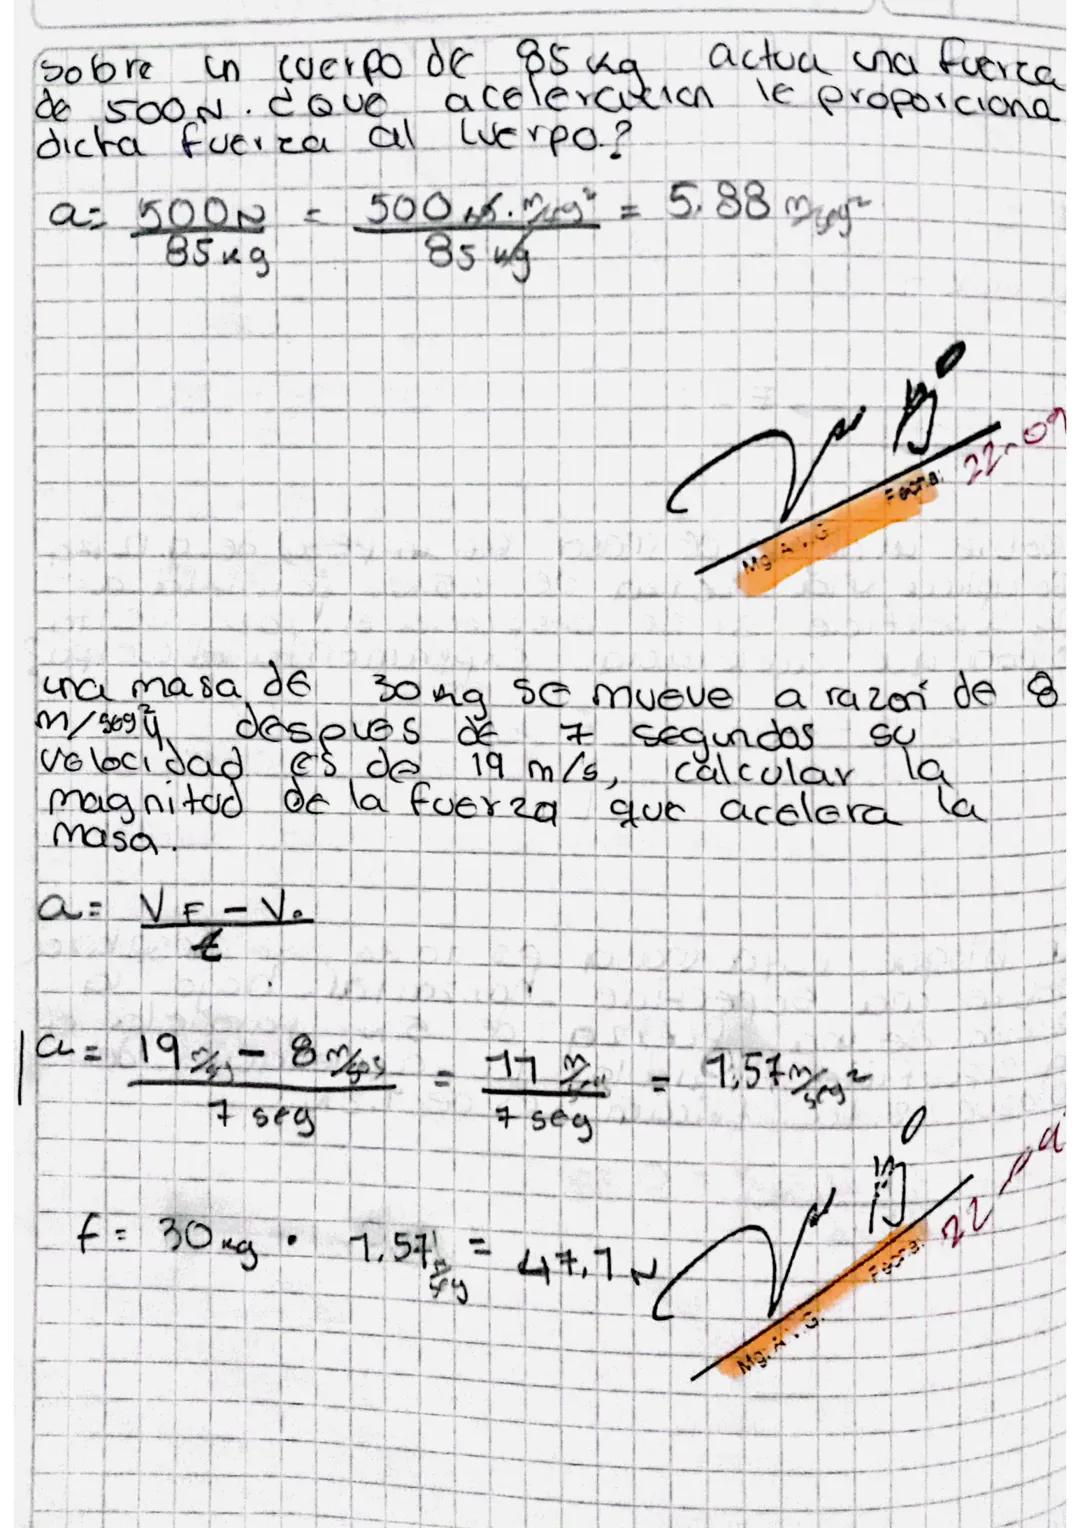 sobre un cuerpo de 85 kg actua una fuerza
de 500 N. ¿Que aceleración le proporciona
dicha fuerza al cuerpo.?
a= 500N / 85 kg = 500 kg.m/seg² / 85 kg = 5.88 m/seg²
22-09
Fecha:
Mg. A.V.G
una masa de 30 kg se mueve a razon de 8
m/seg² y despues de 7 segundos su
velocidad es de 19 m/s, calcular la
magnitud de la fuerza que acelera la
masa.
a= VF - V₀ / t
a= 19 m/seg - 8 m/seg / 7 seg = 11 m/seg / 7 seg = 1,57 m/seg²
f= 30 kg • 1.57 m/seg = 47,1 N
22
Fecha:
Mg. A.V.G.